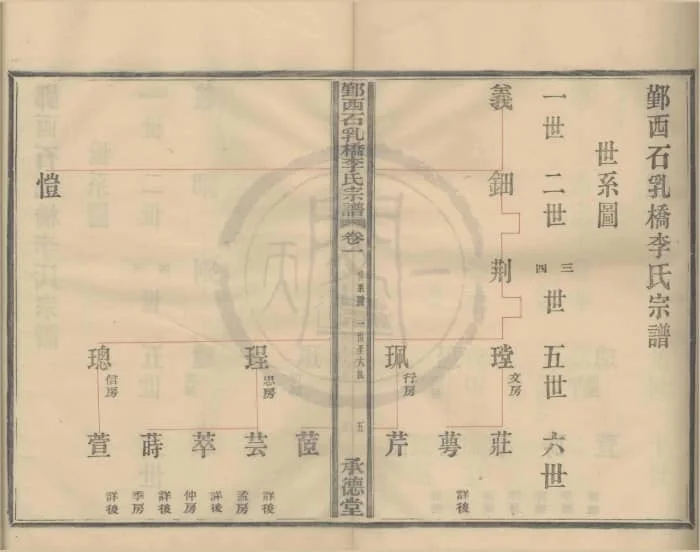 鄞西石乳橋李氏宗譜
世系圖
一世 二世 三四世 五世 六世
義 鈿 荆 瑝 文房 莊
萼 詳後
珮 行房 芹
鄞西石乳橋李氏宗譜 卷一 世系圖 一世至六世 五 承德堂
詳後
珵 忠房 芸 孟房
詳後
萃 仲房
詳後
蒔 季房
璁 信房 萱 詳後
愷